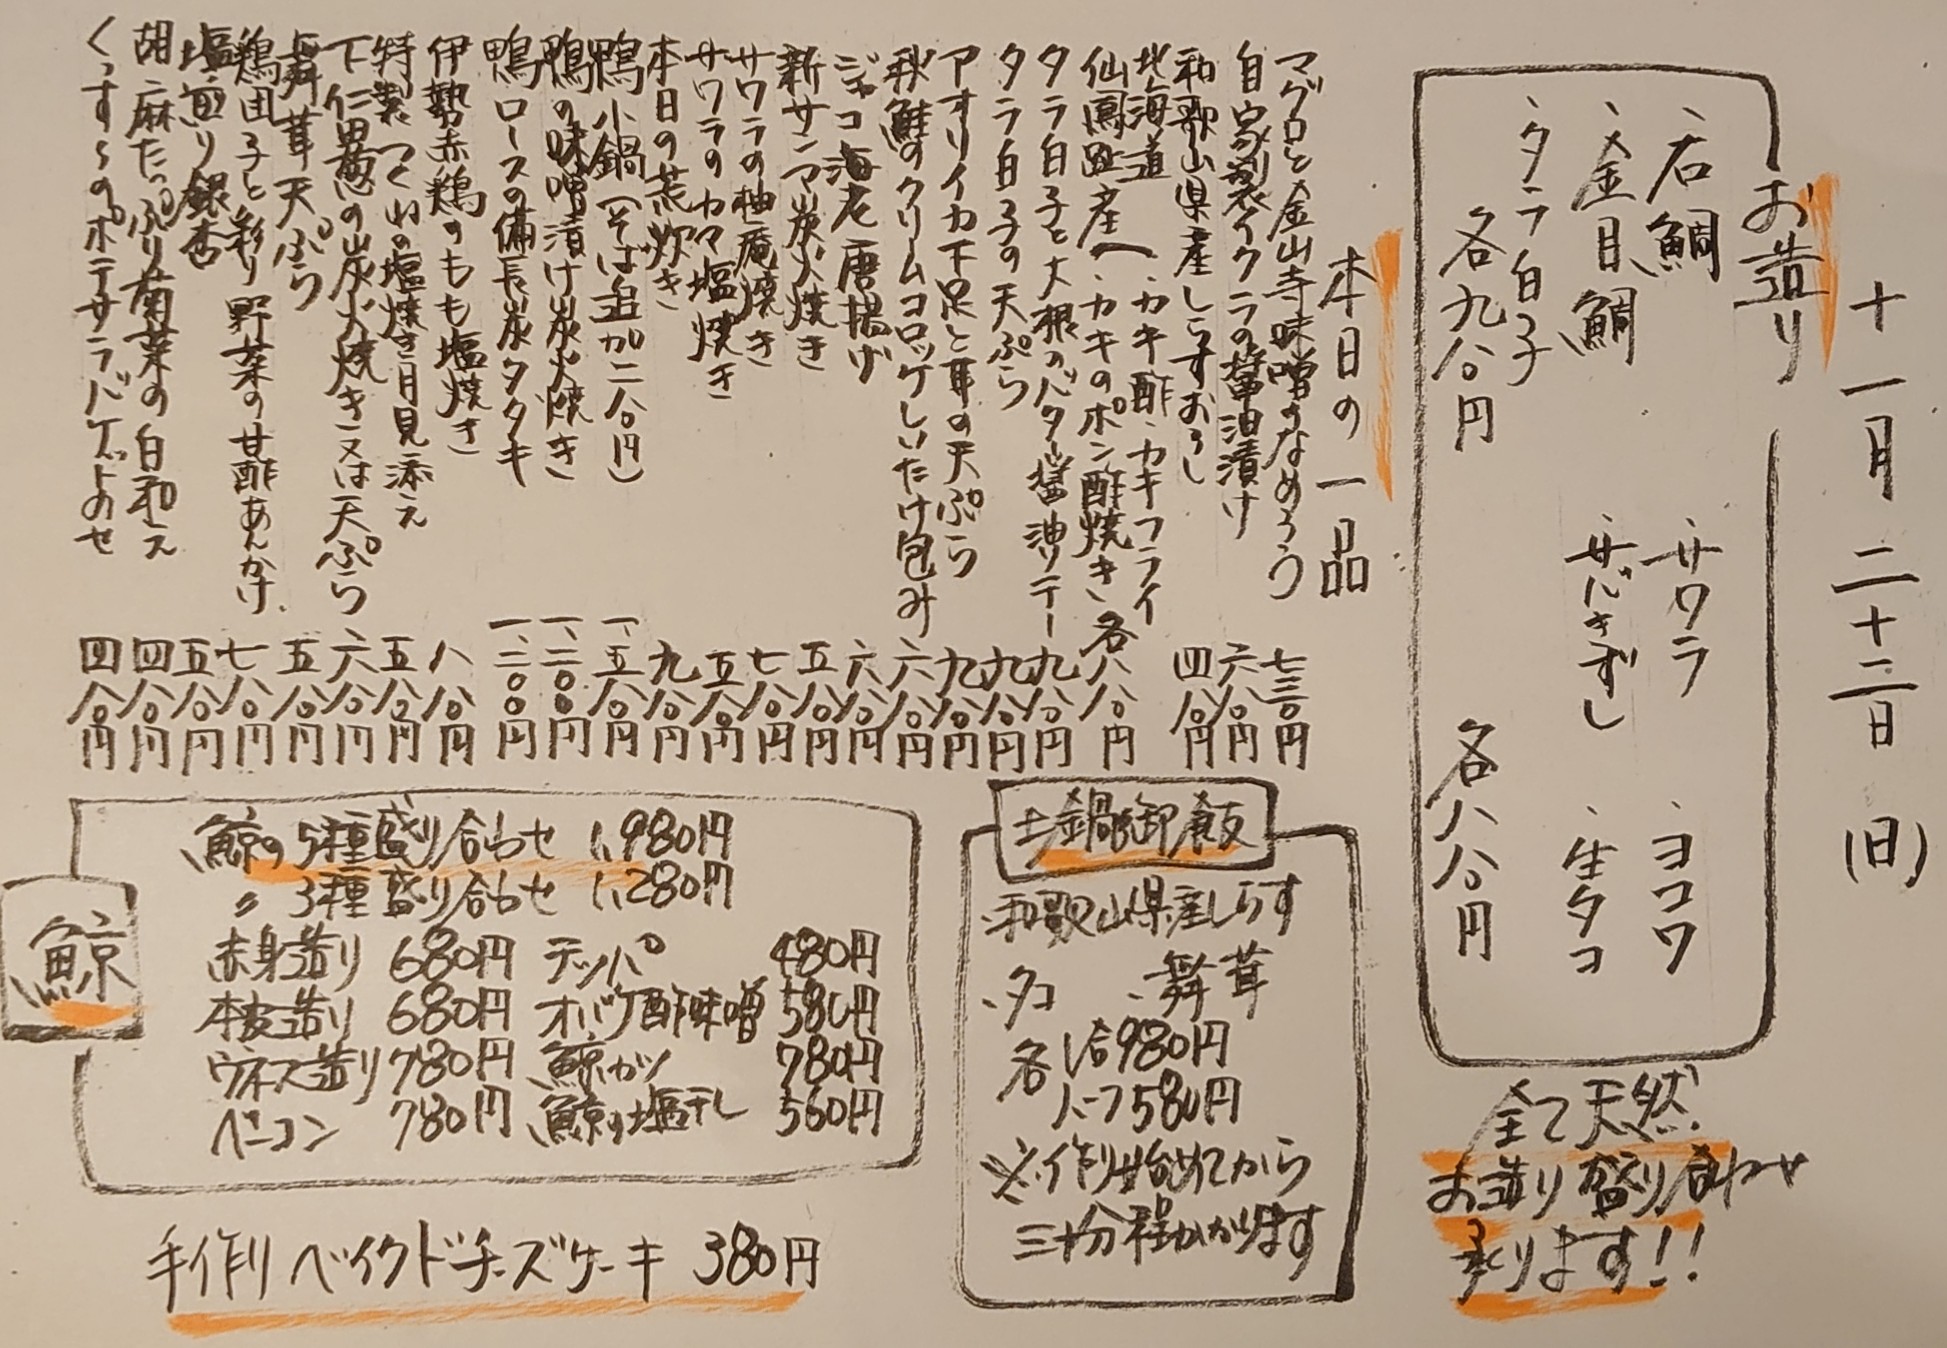 十一月二十二日(日)
お造り
・石鯛
・金目鯛
・タラ白子
各九八〇円
・サワラ
・サバきずし
・ヨコワ
・生タコ
各八八〇円
全て天然
お造り盛り合わせ
承ります!!
本日の一品
マグロと金山寺味噌のなめろう 七三〇円
自家製イクラの醤油漬け 六八〇円
和歌山県産しらすおろし 四八〇円
北海道
仙鳳趾産(・カキ酢・カキフライ
・カキのポン酢焼き 各八八〇円
タラ白子と大根のバター醤油ソテー 九八〇円
タラ白子の天ぷら 九八〇円
アオリイカ下足と耳の天ぷら 九八〇円
秋鮭のクリームコロッケしいたけ包み 六八〇円
ジャコ海老唐揚げ 六八〇円
新サンマ炭火焼き 五八〇円
サワラの柚庵焼き 七八〇円
サワラのカマ塩焼き 五八〇円
本日の荒炊き 九八〇円
鴨小鍋(そば追加二八〇円) 一、五八〇円
鴨の味噌漬け炭火焼き 一、二〇〇円
鴨ロースの備長炭タタキ 一、二〇〇円
伊勢赤鶏のもも塩焼き 八八〇円
特製つくねの塩焼き月見添え 五八〇円
下仁田葱の炭火焼き又は天ぷら 六八〇円
舞茸天ぷら 五八〇円
鶏団子と彩り野菜の甘酢あんかけ 七八〇円
塩煎り銀杏 五八〇円
胡麻たっぷり菊菜の白和え 四八〇円
くんすモのポテサラバゲットのせ 四八〇円
土鍋御飯
・和歌山県産しらす
・タコ ・舞茸
各1合980円
ハーフ580円
※作り始めてから
三十分程かかります
鯨
鯨の5種盛り合わせ 1,980円
〃 3種盛り合わせ 1,280円
赤身造り 680円 テッパ 480円
本皮造り 680円 オバケ酢味噌 580円
ウネス造り 780円 鯨カツ 780円
ベーコン 780円 鯨の塩干し 560円
手作りベイクドチーズケーキ 380円